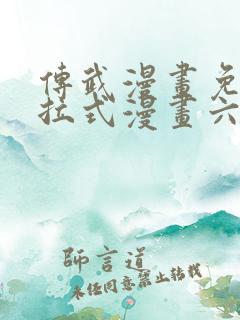 傳武漫畫免
拉式漫畫六
師言道
未經同意禁止轉載